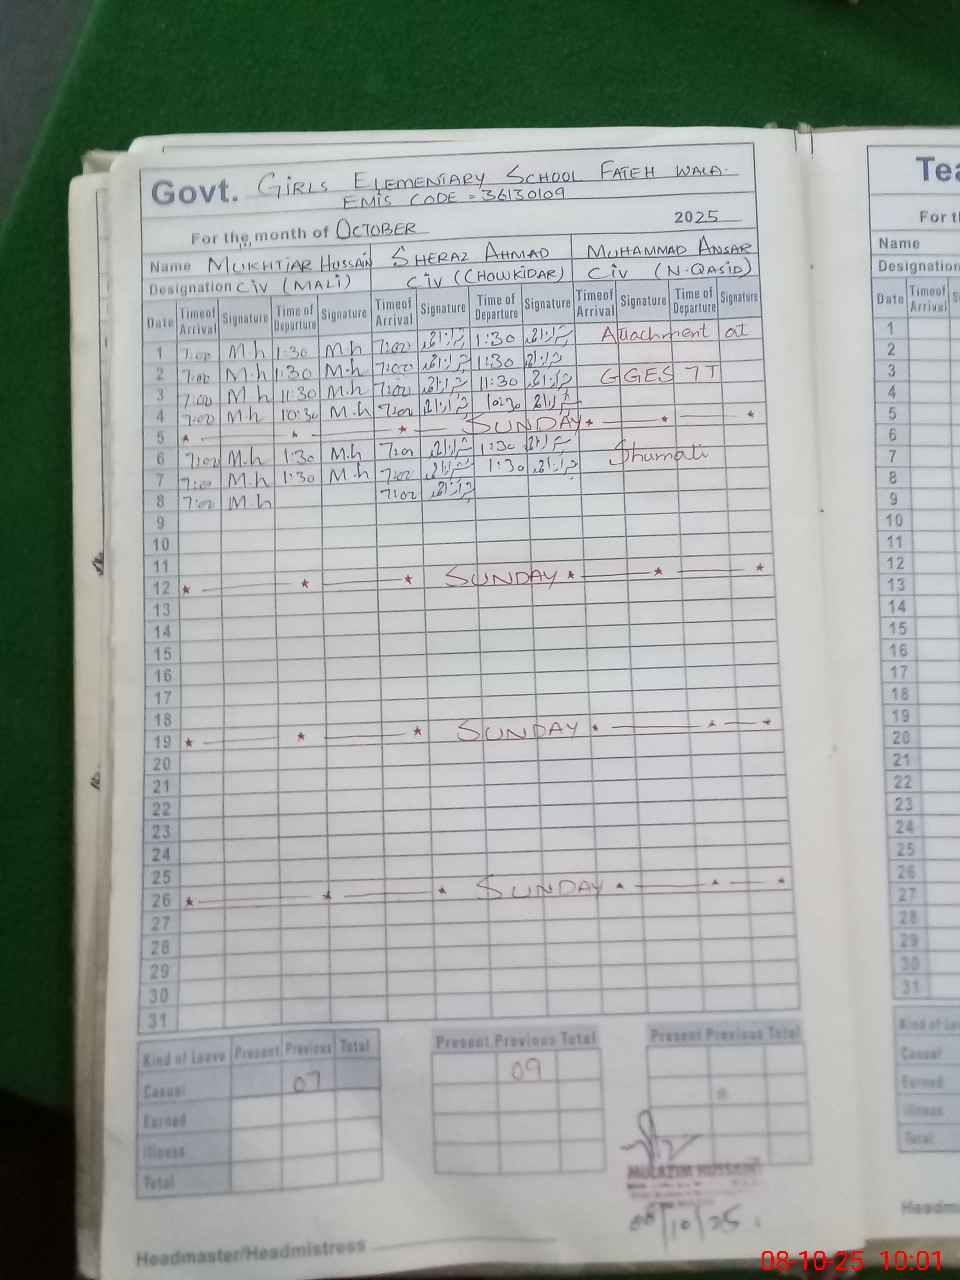 Govt. GIRLS ELEMENTARY SCHOOL FATEH WALA.
EMIS CODE = 36130109
For the month of OCTOBER 2025
Name MUKHTIAR HUSSAIN SHERAZ AHMAD MUHAMMAD ANSAR
Designation CIV (MALI) CIV (CHOWKIDAR) CIV (N-QASID)
Date Time of Arrival Signature Time of Departure Signature Time of Arrival Signature Time of Departure Signature Time of Arrival Signature Time of Departure Signature
1 7:00 M.h 1:30 M.h 7:00 1:30 Attachment at
2 7:00 M.h 1:30 M.h 7:00 1:30
3 7:00 M.h 11:30 M.h 7:00 11:30 GGES 7T
4 7:00 M.h 10:30 M.h 7:00 10:30
5 SUNDAY
6 7:00 M.h 1:30 M.h 7:00 1:30 Shumali
7 7:00 M.h 1:30 M.h 7:00 1:30
8 7:00 M.h 7:00
9
10
11
12 SUNDAY
13
14
15
16
17
18
19 SUNDAY
20
21
22
23
24
25
26 SUNDAY
27
28
29
30
31
Kind of Leave Present Previous Total Present Previous Total Present Previous Total
Casual 07 09
Earned
Illness
Total
MULAZIM HUSSAIN
08/10/25.
Headmaster/Headmistress
Tea
For th
Name
Designation
Date Time of Arrival
1
2
3
4
5
6
7
8
9
10
11
12
13
14
15
16
17
18
19
20
21
22
23
24
25
26
27
28
29
30
31
Kind of Lea
Casual
Earned
Illness
Total
Headma
08-10-25 10:01